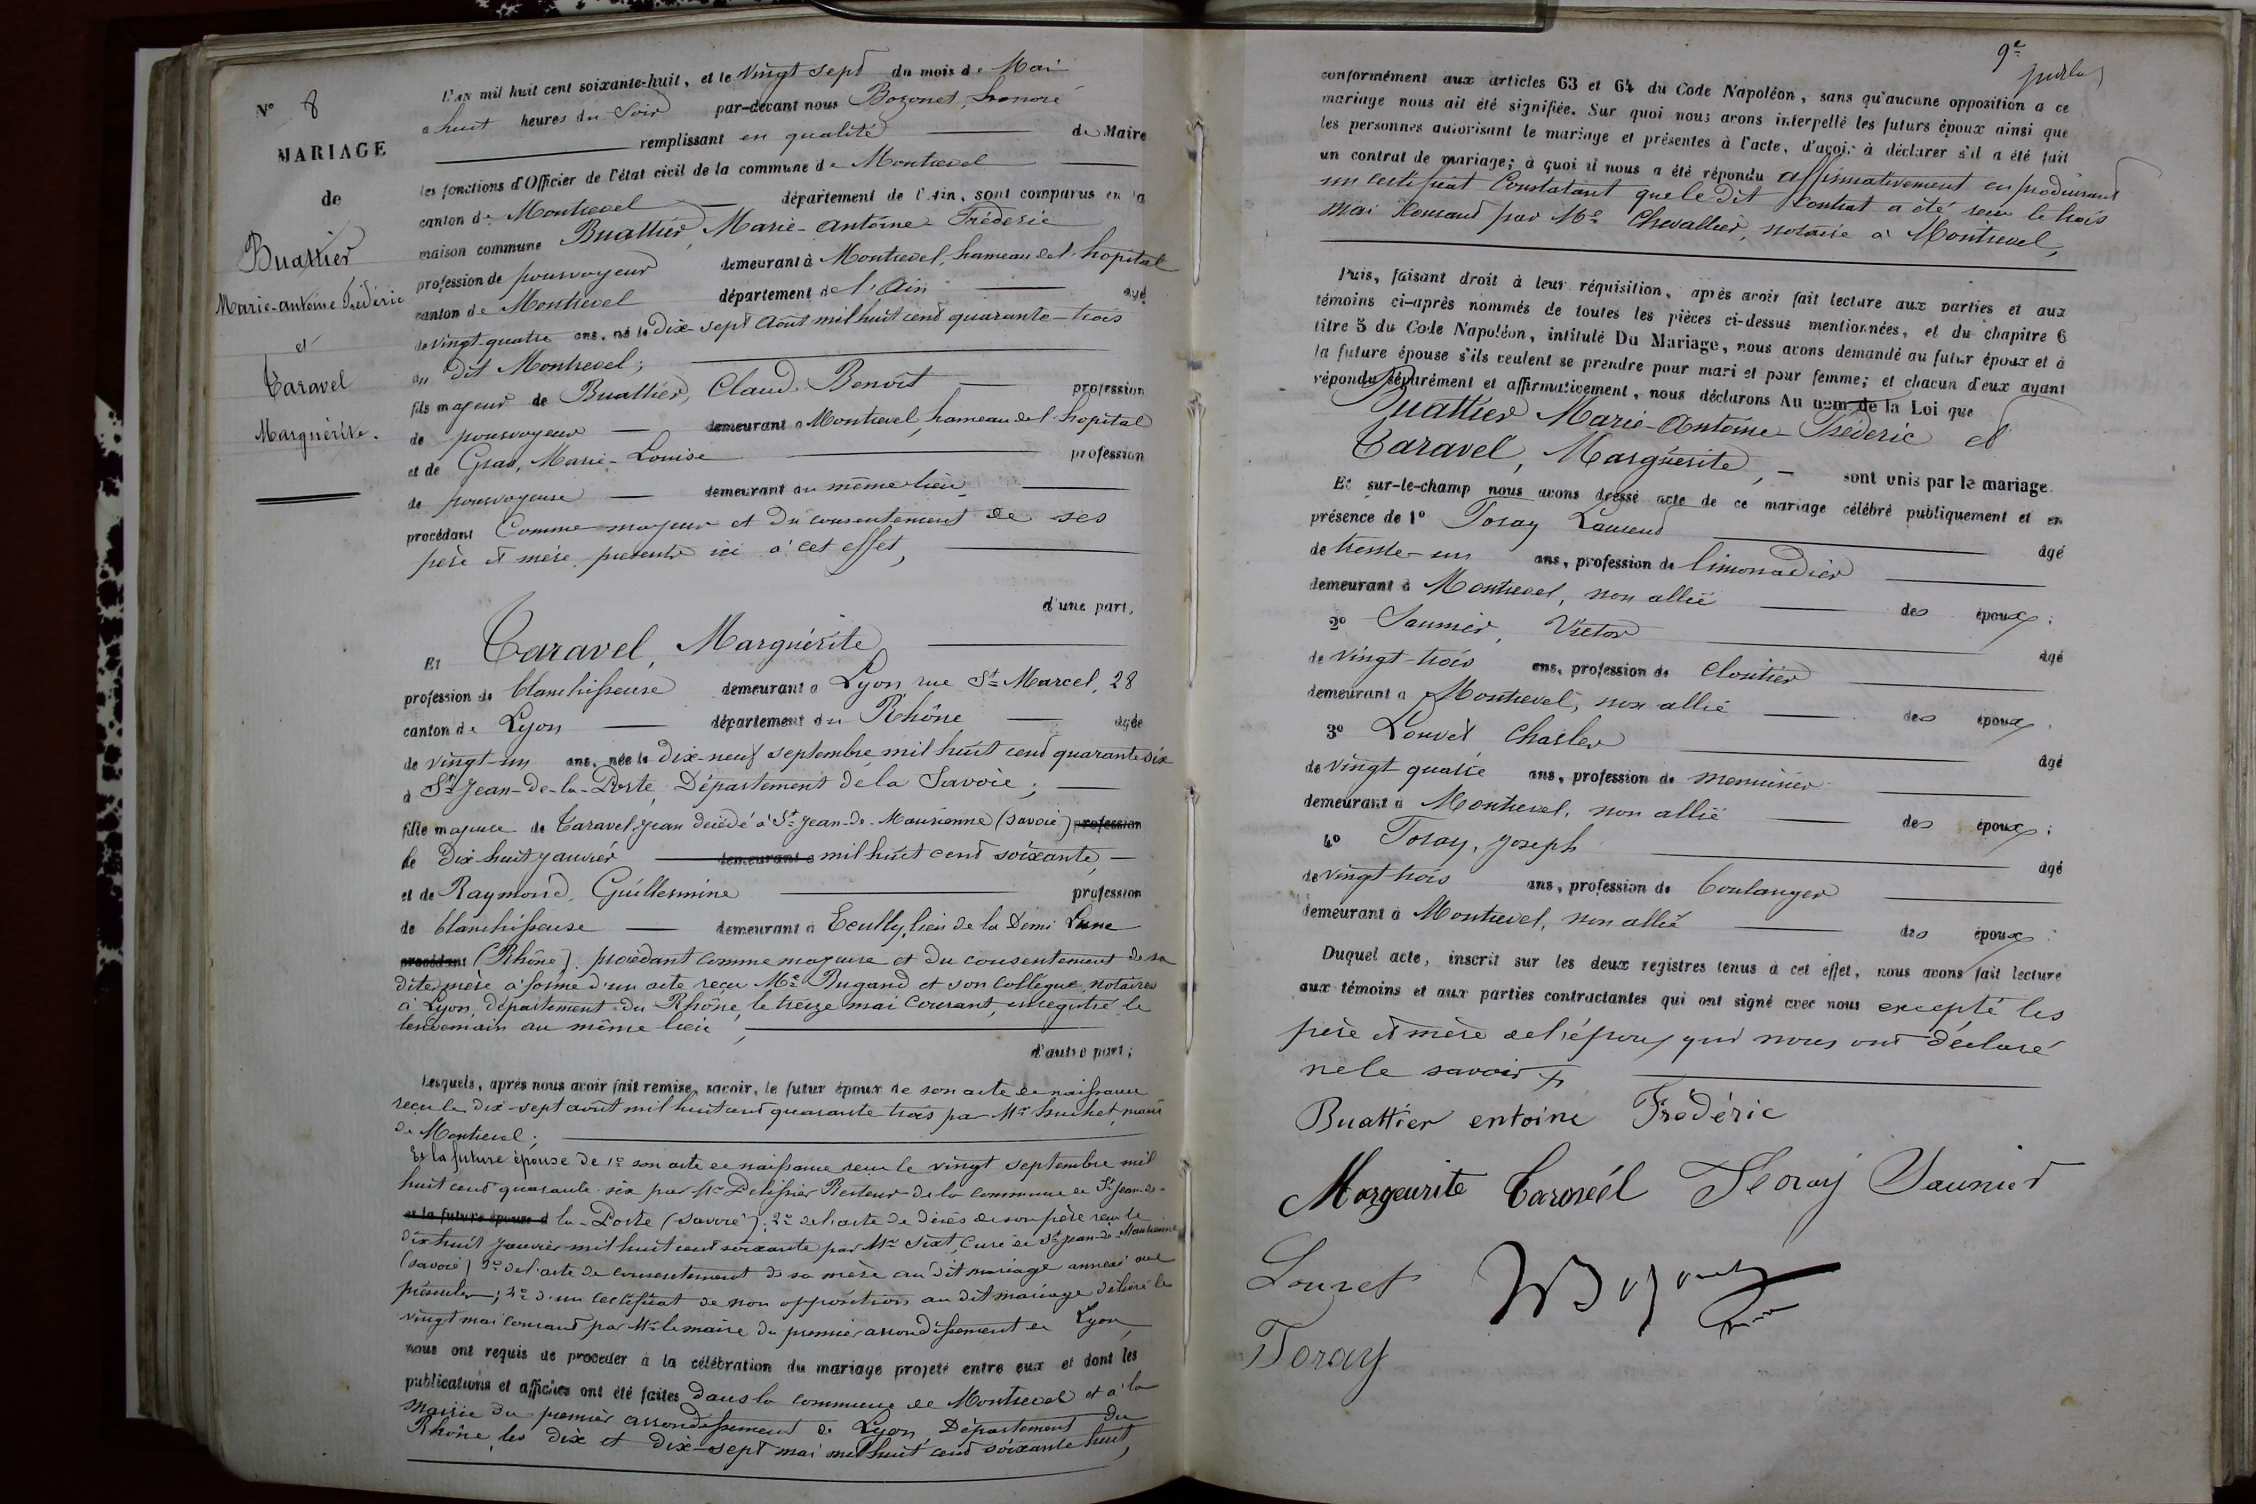 N° 8
MARIAGE
de
Buattier
Marie-antoine Frédéric
et
Caravel
Marguérite.
L'an mil huit cent soixante-huit, et le vingt sept du mois de Mai
a huit heures du Soir par-devant nous Bozonet, honoré
remplissant en qualité de Maire
les fonctions d'Officier de l'état civil de la commune de Montrevel
canton de Montrevel département de l'Ain, sont comparus en la
maison commune Buattier, Marie-antoine Fréderic
profession de pourvoyeur demeurant à Montrevel, hameau de l'hopital
canton de Montrevel département de l'Ain agé
de vingt-quatre ans, né le Dix-sept Août mil huit cent quarante-trois
au dit Montrevel;
fils majeur de Buattier, Claude Benoit profession
de pourvoyeur demeurant a Montrevel, hameau de l'hopital
et de Gras, Marie-Louise profession
de pourvoyeuse demeurant au même lieu
procédant Comme majeur et du consentement de ses
père et mère presents ici à cet effet,
d'une part,
Et Caravel, Marguérite
profession de blanchisseuse demeurant a Lyon rue St Marcel, 28
canton de Lyon département du Rhône agée
de vingt-un ans, née le dix-neuf septembre mil huit cent quarante six
à St Jean-de-la-Porte, Département de la Savoie;
fille majeure de Caravel Jean décédé à St Jean-de-Maurienne (savoie) profession
le dix-huit janvier demeurant a mil huit cent soixante,
et de Raymond, Guillermine profession
de blanchisseuse demeurant à Ecully, lieu de la Demi Lune
procédant (Rhône) procédant comme majeure et du consentement de sa
dite mère à forme d'un acte reçu Me Bugand et son collègue, notaires
à Lyon, département du Rhône, le treize mai courant, enregistré le
lendemain au même lieu,
d'autre part;
Lesquels, après nous avoir fait remise, savoir, le futur époux de son acte de naissance
reçu le dix-sept août mil huit cent quarante trois par Mr huchet, maire
de Montrevel;
Et la future épouse de 1° son acte de naissance reçu le vingt septembre mil
huit cent quarante-six par Mr Pelissier Recteur de la commune de St Jean-de-
et la future épouse d la-Porte (savoie); 2° de l'acte de décès de son père reçu le
dix huit janvier mil huit cent soixante par Mr Sixt, Curé de St Jean-de-Maurienne
(savoie) 3° de l'acte de consentement de sa mère au dit mariage annexé aux
présentes; 4° d'un certificat de non opposition au dit mariage délivré le
vingt mai courant par Mr le maire du premier arrondissement de Lyon,
nous ont requis de procéder à la célébration du mariage projeté entre eux et dont les
publications et affiches ont été faites dans la commune de Montrevel et à la
Mairie du premier arrondissement de Lyon, Département du
Rhône, les dix et dix-sept mai mil huit cent soixante huit,
9e
conformément aux articles 63 et 64 du Code Napoléon, sans qu'aucune opposition a ce
mariage nous ait été signifiée. Sur quoi nous avons interpellé les futurs époux ainsi que
les personnes autorisant le mariage et présentes à l'acte, d'avoir à déclarer s'il a été fait
un contrat de mariage; à quoi il nous a été répondu affirmativement en produisant
un certificat Constatant que le dit Contrat a été reçu le trois
mai courant par Me Chevallier, notaire à Montrevel,
Puis, faisant droit à leur réquisition, après avoir fait lecture aux parties et aux
témoins ci-après nommés de toutes les pièces ci-dessus mentionnées, et du chapitre 6
titre 5 du Code Napoléon, intitulé Du Mariage, nous avons demandé au futur époux et à
la future épouse s'ils veulent se prendre pour mari et pour femme; et chacun d'eux ayant
répondu séparément et affirmativement, nous déclarons Au nom de la Loi que
Buattier Marie-Antoine-Fréderic et
Caravel, Marguérite, sont unis par le mariage.
Et sur-le-champ nous avons dressé acte de ce mariage célébré publiquement et en
présence de 1° Toray Laurent âgé
de trente-un ans, profession de limonadier
demeurant à Montrevel, non allié des époux;
2° Saunier, Victor âgé
de vingt-trois ans, profession de cloutier
demeurant a Montrevel, non allié des époux.
3° Louvet Charles âgé
de vingt quatre ans, profession de menuisier
demeurant à Montrevel, non allié des époux;
4° Toray, Joseph âgé
de vingt-trois ans, profession de boulanger
demeurant à Montrevel, non allié des époux.
Duquel acte, inscrit sur les deux registres tenus à cet effet, nous avons fait lecture
aux témoins et aux parties contractantes qui ont signé avec nous excepté les
père et mère de l'époux qui nous ont déclaré
ne le savoir
Buattier entoine Frédéric
Morgeurite Carovéél Thoray Saunier
Louvet
Toray